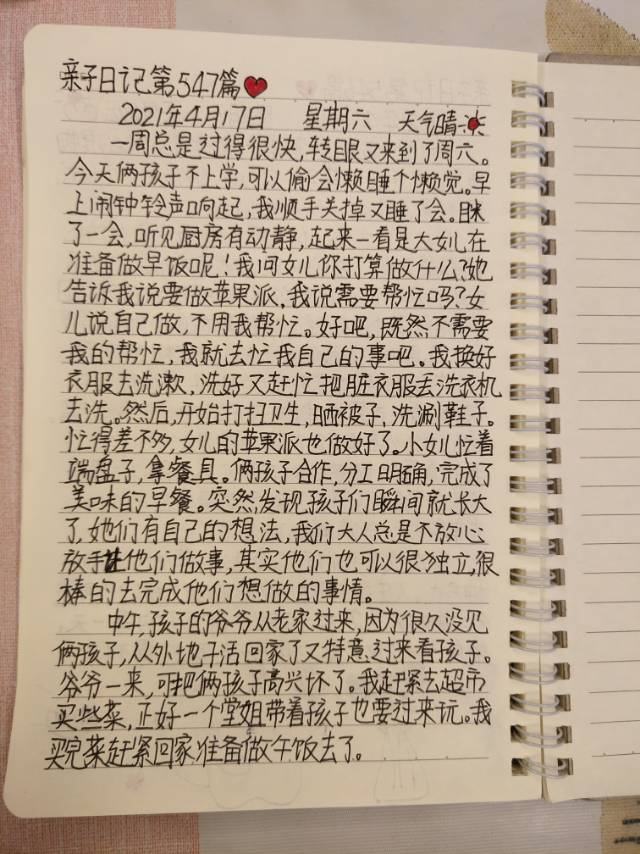 亲子日记第547篇
2021年4月17日 星期六 天气晴
一周总是过得很快,转眼又来到了周六。
今天俩孩子不上学,可以偷会懒睡个懒觉。早
上闹钟铃声响起,我顺手关掉又睡了会。眯
了一会,听见厨房有动静,起来一看是大女儿在
准备做早饭呢!我问女儿你打算做什么?她
告诉我说要做苹果派,我说需要帮忙吗?女
儿说自己做,不用我帮忙。好吧,既然不需要
我的帮忙,我就去忙我自己的事吧。我换好
衣服去洗漱,洗好又赶忙把脏衣服丢洗衣机
去洗。然后,开始打扫卫生,晒被子,洗涮鞋子。
忙得差不多,女儿的苹果派也做好了。小女儿忙着
端盘子,拿餐具。俩孩子合作,分工明确,完成了
美味的早餐。突然,发现孩子们瞬间就长大
了,她们有自己的想法,我们大人总是不放心
放手让他们做事,其实他们也可以很独立,很
棒的去完成他们想做的事情。
中午,孩子的爷爷从老家过来,因为很久没见
俩孩子,从外地干活回家了又特意过来看孩子。
爷爷一来,可把俩孩子高兴坏了。我赶紧去超市
买些菜,正好一个堂姐带着孩子也要过来玩。我
买完菜赶紧回家准备做午饭去了。